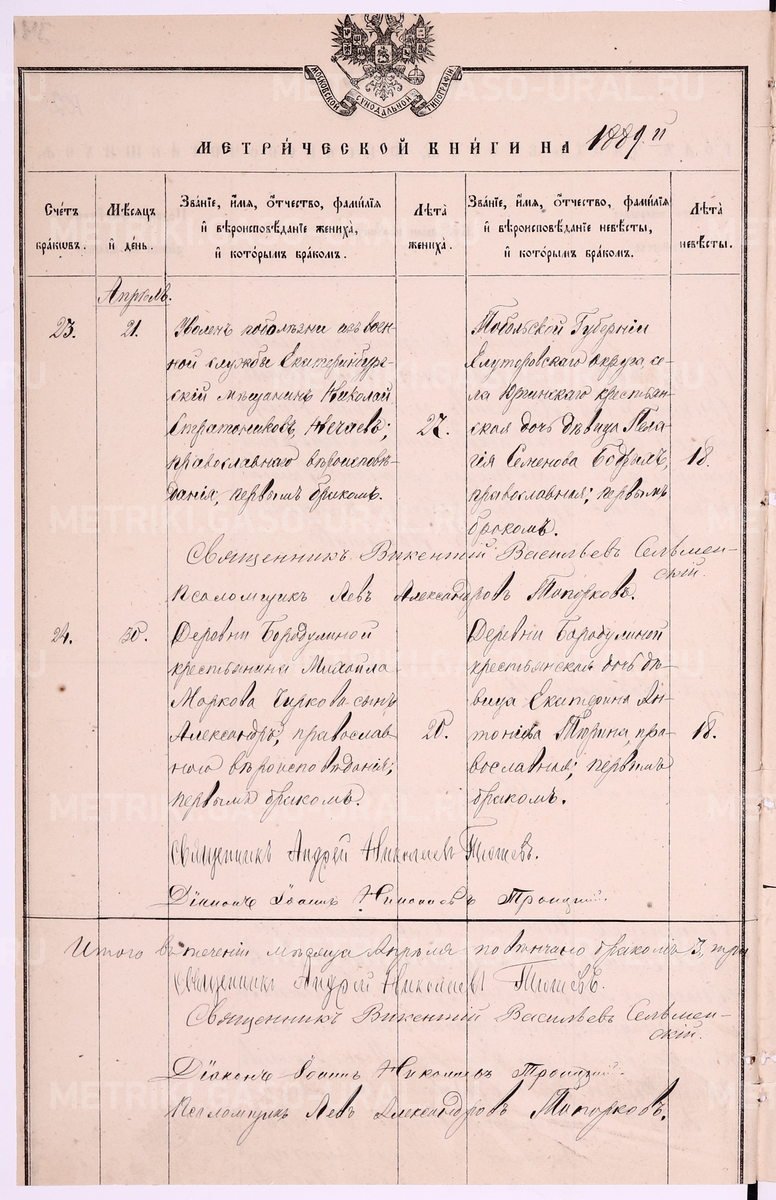 МОСКОВСКОЙ СѴНОДАЛЬНОЙ ТИПОГРАФІИ
МЕТРИ́ЧЕСКОЙ КНИ́ГИ НА 1889.й
Счетъ браковъ.
Мѣсяцъ и день.
Званіе, имя, отчество, фамилія
и вѣроисповѣданіе жениха,
и которымъ бракомъ.
Лѣта жениха.
Званіе, имя, отчество, фамилія
и вѣроисповѣданіе невѣсты,
и которымъ бракомъ.
Лѣта невѣсты.
Апрѣль.
23.
21.
Уволенъ по болѣзни изъ воен-
ной службы Екатеринбург-
скій мѣщанинъ Николай
Стратониковъ Нечаевъ;
православнаго вѣроисповѣ-
данія; первымъ бракомъ.
27.
Тобольской Губерніи
Ялуторовскаго округа, се-
ла Юргинскаго крестьян-
ская дочь дѣвица Пела-
гія Семенова
православная; первымъ
бракомъ.
18.
Священникъ Викентій Васильевъ Сельмен-
скій.
Псаломщикъ Левъ Александровъ Топорковъ.
24.
30.
Деревни Бородулиной
крестьянина Михаила
Маркова Чиркова сынъ
Александръ, православ-
наго вѣроисповѣданія;
первымъ бракомъ.
20.
Деревни Бородулиной
крестьянская дочь дѣ-
вица Екатерина Ан-
тонова Тюрина, пра-
вославная; первымъ
бракомъ.
18.
Священникъ Андрей Николаевъ
Діаконъ Іоаннъ Николаевъ Троицкій.
Итого въ теченіи мѣсяца Апрѣля повѣнчано бракомъ 3, три
Священникъ Андрей Николаевъ
Священникъ Викентій Васильевъ Сельмен-
скій.
Діаконъ Іоаннъ Николаевъ Троицкій.
Псаломщикъ Левъ Александровъ Топорковъ.
METRIKI.GASO-URAL.RU